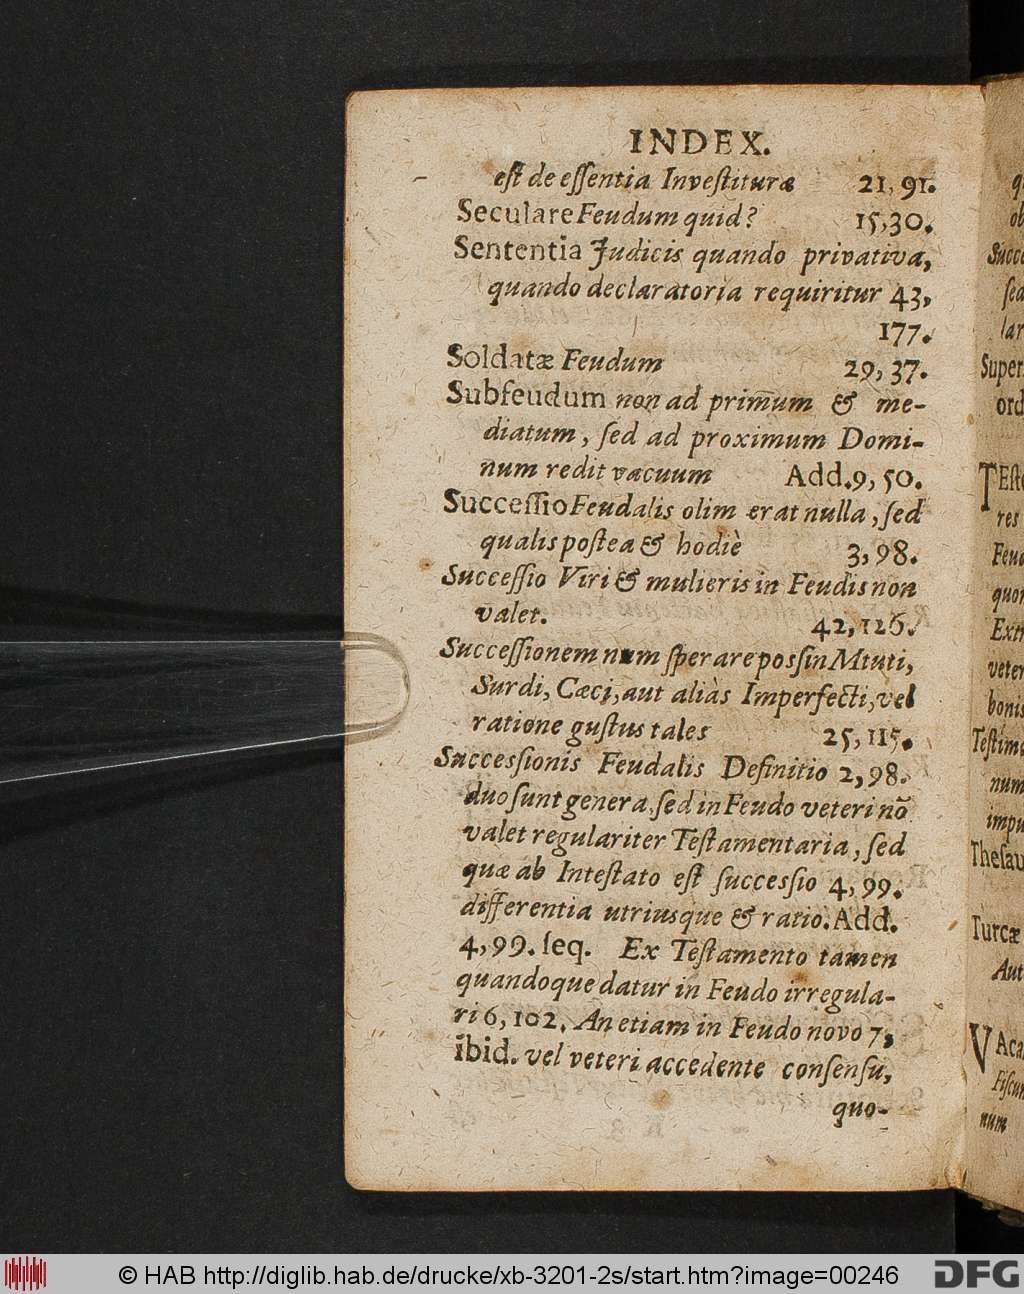 INDEX.
est de essentia Investituræ 21, 91.
Seculare Feudum quid? 15, 30.
Sententia Judicis quando privativa,
quando declaratoria requiritur 43,
177.
Soldatæ Feudum 29, 37.
Subfeudum non ad primum & me-
diatum, sed ad proximum Domi-
num redit vacuum Add. 9, 50.
Successio Feudalis olim erat nulla, sed
qualis postea & hodiè 3, 98.
Successio Viri & mulieris in Feudis non
valet. 42, 126.
Successionem num sperare possin Mtuti,
Surdi, Cæci, aut aliàs Imperfecti, vel
ratione gustus tales 25, 115.
Successionis Feudalis Definitio 2, 98.
duo sunt genera, sed in Feudo veteri nō
valet regulariter Testamentaria, sed
quæ ab Intestato est successio 4, 99.
differentia utriusque & ratio. Add.
4, 99. seq. Ex Testamento tamen
quandoque datur in Feudo irregula-
ri 6, 102. An etiam in Feudo novo 7,
ibid. vel veteri accedente consensu,
quo-
Succe
sed
lar
Super
ord
TEste
res
Feud
quor
Extr
veter
bonis
Testimo
num
impu
Thesau
Turcæ
Aut
VAca
Fiscun
num
© HAB http://diglib.hab.de/drucke/xb-3201-2s/start.htm?image=00246
DFG